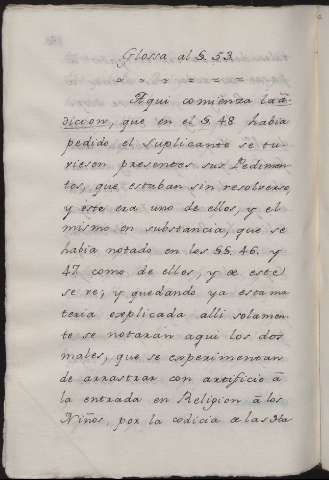 Glossa al §. 53.
Aqui comienza la ā-
diccion, que en el §. 48 havia
pedido el Suplicante se tu-
viesen presentes sus Pedimen-
tos, que estaban sin resolverse,
y este era uno de ellos, y el
mismo en substancia, que se
habia notado en los §§. 46. y
47. como de ellos, y de este
se ve; y quedando ya esta ma-
teria explicada alli solamen-
te se notarán aqui los dos
males, que se experimentan
de arrastrar con artificio â
la entrada en Religion â los
Niños, por la codicia de las